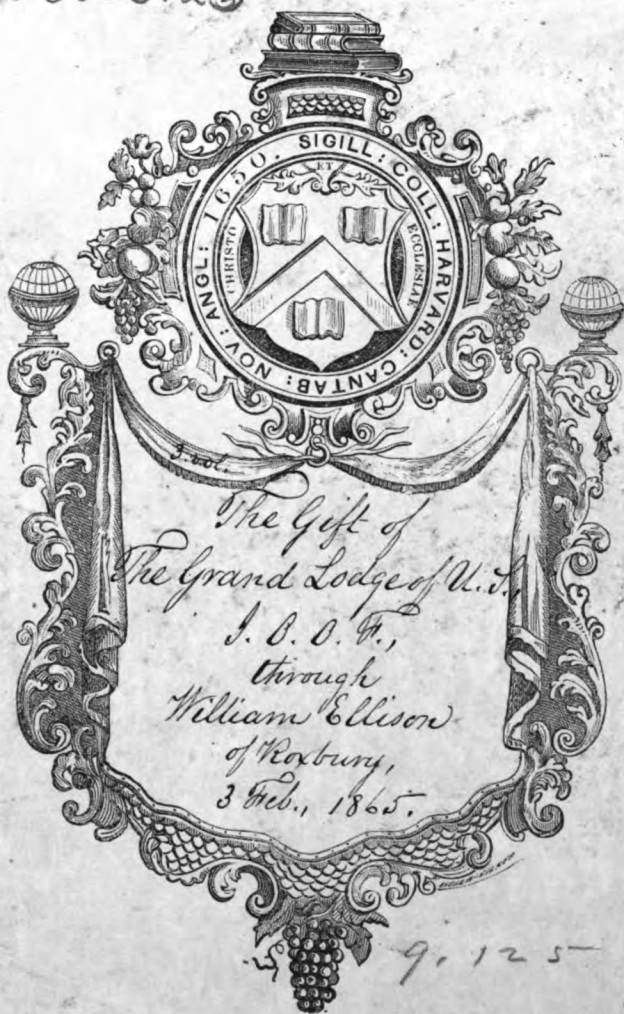 SIGILL: COLL: HARVARD: CANTAB: NOV: ANGL: 1650.
ET
CHRISTO
ECCLESIAE
3. vol.
The Gift of
The Grand Lodge of U. S.
I. O. O. F.,
through
William Ellison
of Roxbury,
3 Feb., 1865.
9. 125